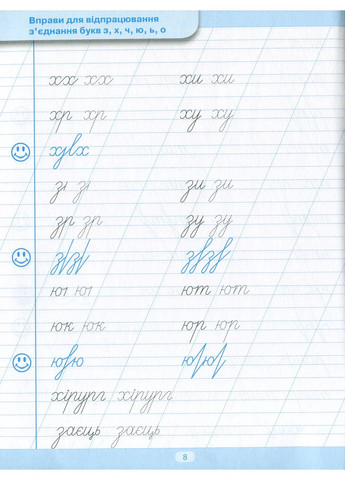 Вправи для відпрацювання
з'єднання букв з, х, ч, ю, ь, о
хх хх хи хи
хр хр ху ху
зі зі зи зи
зр зр зу зу
юі юі ют ют
юк юк юр юр
хірург хірург
заєць заєць
8